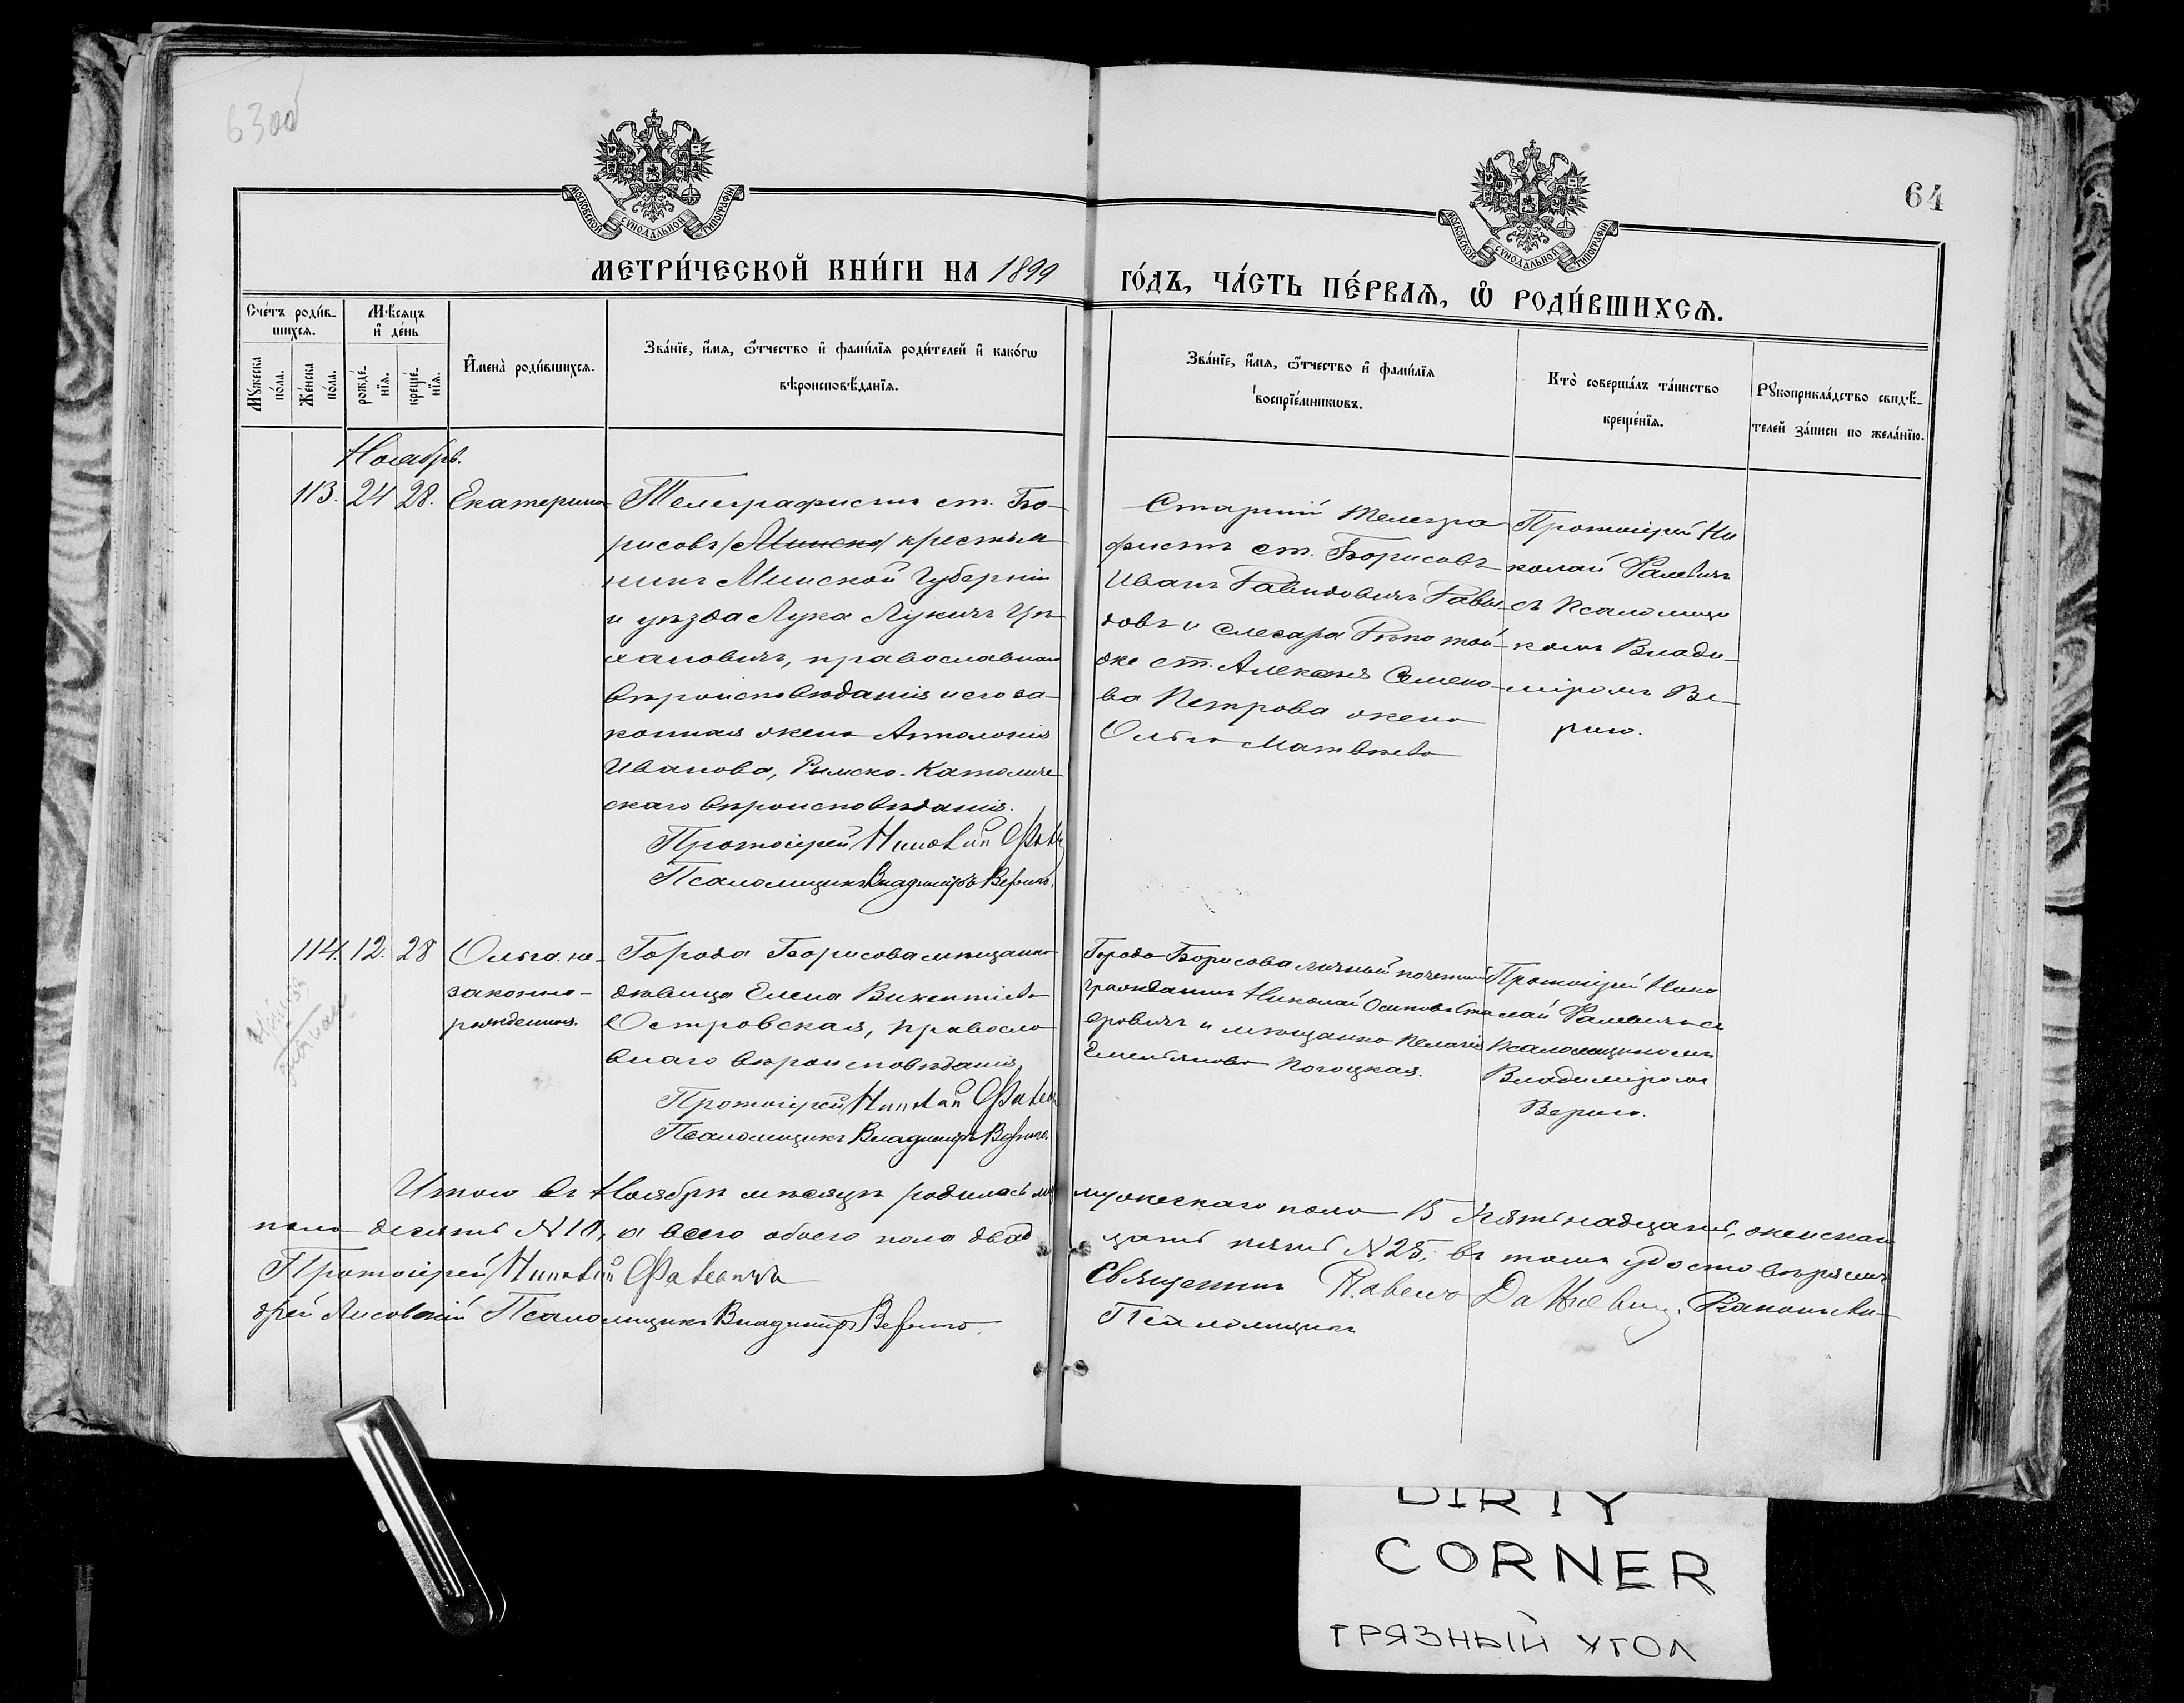 63об
64
МОСКОВСКОЙ СѴНОДАЛЬНОЙ ТИПОГРАФІИ
МОСКОВСКОЙ СѴНОДАЛЬНОЙ ТИПОГРАФІИ
МЕТРИ́ЧЕСКОЙ КНИ́ГИ НА 1899 ГО́ДЪ, ЧА́СТЬ ПЕ́РВАЯ, Ѡ҆ РОДИ́ВШИХСЯ.
Сче́тъ роди́в-
шихся.
Мѣ́сяцъ
и҆ де́нь
Мꙋ́жеска
по́ла.
Же́нска
по́ла.
рожде́-
нїя.
креще́-
нїя.
И҆мена̀ роди́вшихся.
Зва́нїе, и҆́мя, ѻ҆́тчество и҆ фами́лїя роди́телей и҆ како́гѡ
вѣроисповѣ́данїя.
Зва́нїе, и҆́мя, ѻ҆́тчество и҆ фами́лїя
воспрїе́мникѡвъ.
Кто̀ соверша́лъ та́инство
креще́нїя.
Рꙋкоприкла́дство свидѣ́-
телей за́писи по жела́нїю.
Ноябрь.
113. 24 28. Екатерина
Телеграфистъ ст. Бо-
рисовъ /Минско/ крестья
нинъ Минской Губерніи
и уѣзда Лука Лукичъ
хановичъ, православнаго
вѣроисповѣданія и его за-
конная жена Антолонія
Иванова, Римско-Католиче
скаго вѣроисповѣданія.
Протоіерей Николай
Псаломщикъ Владиміръ Верига.
Старшій телегра
фистъ ст. Борисовъ
Иванъ Давидовичъ Давы-
довъ и слесаря Депо той-
же ст. Алексѣя Семено-
ва Петрова жена
Ольга Матвѣева
Протоіерей Ни
колай Фалевичъ
съ Псаломщи
комъ Влади-
міромъ Ве-
ригою.
114. 12. 28 Ольга не-
законно-
рожденная.
Города Борисова мѣщанка
дѣвица Елена Викентіева
Островская, правосла
внаго вѣроисповѣданія
Протоіерей Николай Фалевичъ
Псаломщикъ Владиміръ Верига.
Города Борисова личный почетный
гражданинъ Николай Осиповъ
еровичъ и мѣщанка Пелагія
Емельянова Погоцкая.
Протоіерей Нико
лай Фалевичъ съ
Псаломщикомъ
Владиміромъ
Веригою.
Итого въ Ноябрѣ мѣсяцѣ родилось мужескаго пола 15 пятьнадцать, женскаго
пола десять №10, а всего обоего пола двадцать пять №25, въ томъ удостовѣряемъ
Протоіерей Николай Фалевичъ Священникъ Павелъ
дрей Лисовскій Псаломщикъ Владиміръ Верига. Псаломщикъ
DIRTY
CORNER
ГРЯЗНЫЙ УГОЛ